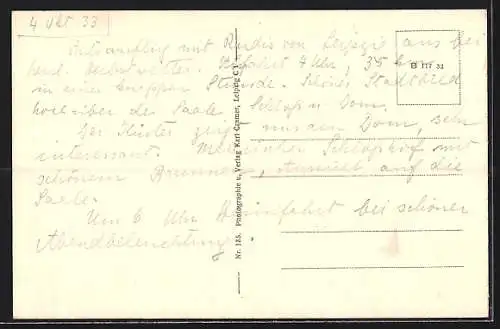 4 Okt 33
Autoausflug mit Rudis von Leipzig aus bei
herrl. Herbstwetter. Abfahrt 4 Uhr, 35
in einer knappen Stunde. Schönes Stadtbild
hoch über der Saale, Schloß u. Dom.
Der Küster zeigt uns den Dom, sehr
interessant. Malerischer Schloßhof mit
schönem Brunnen, Aussicht auf die
Saale.
Um 6 Uhr Heimfahrt bei schöner
Abendbeleuchtung.
B 117 31
Nr. 125. Photographie u. Verlag Karl Cramer, Leipzig C 1